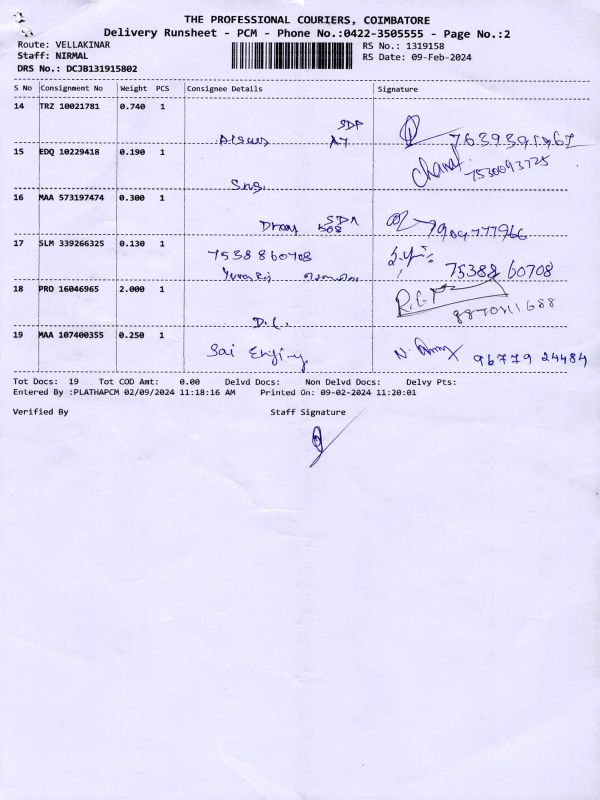 THE PROFESSIONAL COURIERS, COIMBATORE
Delivery Runsheet - PCM - Phone No.:0422-3505555 - Page No.:2
Route: VELLAKINAR RS No.: 1319158
Staff: NIRMAL RS Date: 09-Feb-2024
DRS No.: DCJB131915802
S No Consignment No Weight PCS Consignee Details Signature
14 TRZ 10021781 0.740 1
15 EDQ 10229418 0.190 1
7530093725
16 MAA 573197474 0.300 1
17 SLM 339266325 0.130 1 7538860708
75388 60708
18 PRD 16046965 2.000 1
D.C.
19 MAA 107400355 0.250 1
Sai 96779 24484
Tot Docs: 19 Tot COD Amt: 0.00 Delvd Docs: Non Delvd Docs: Delvy Pts:
Entered By :PLATHAPCM 02/09/2024 11:18:16 AM Printed On: 09-02-2024 11:20:01
Verified By Staff Signature